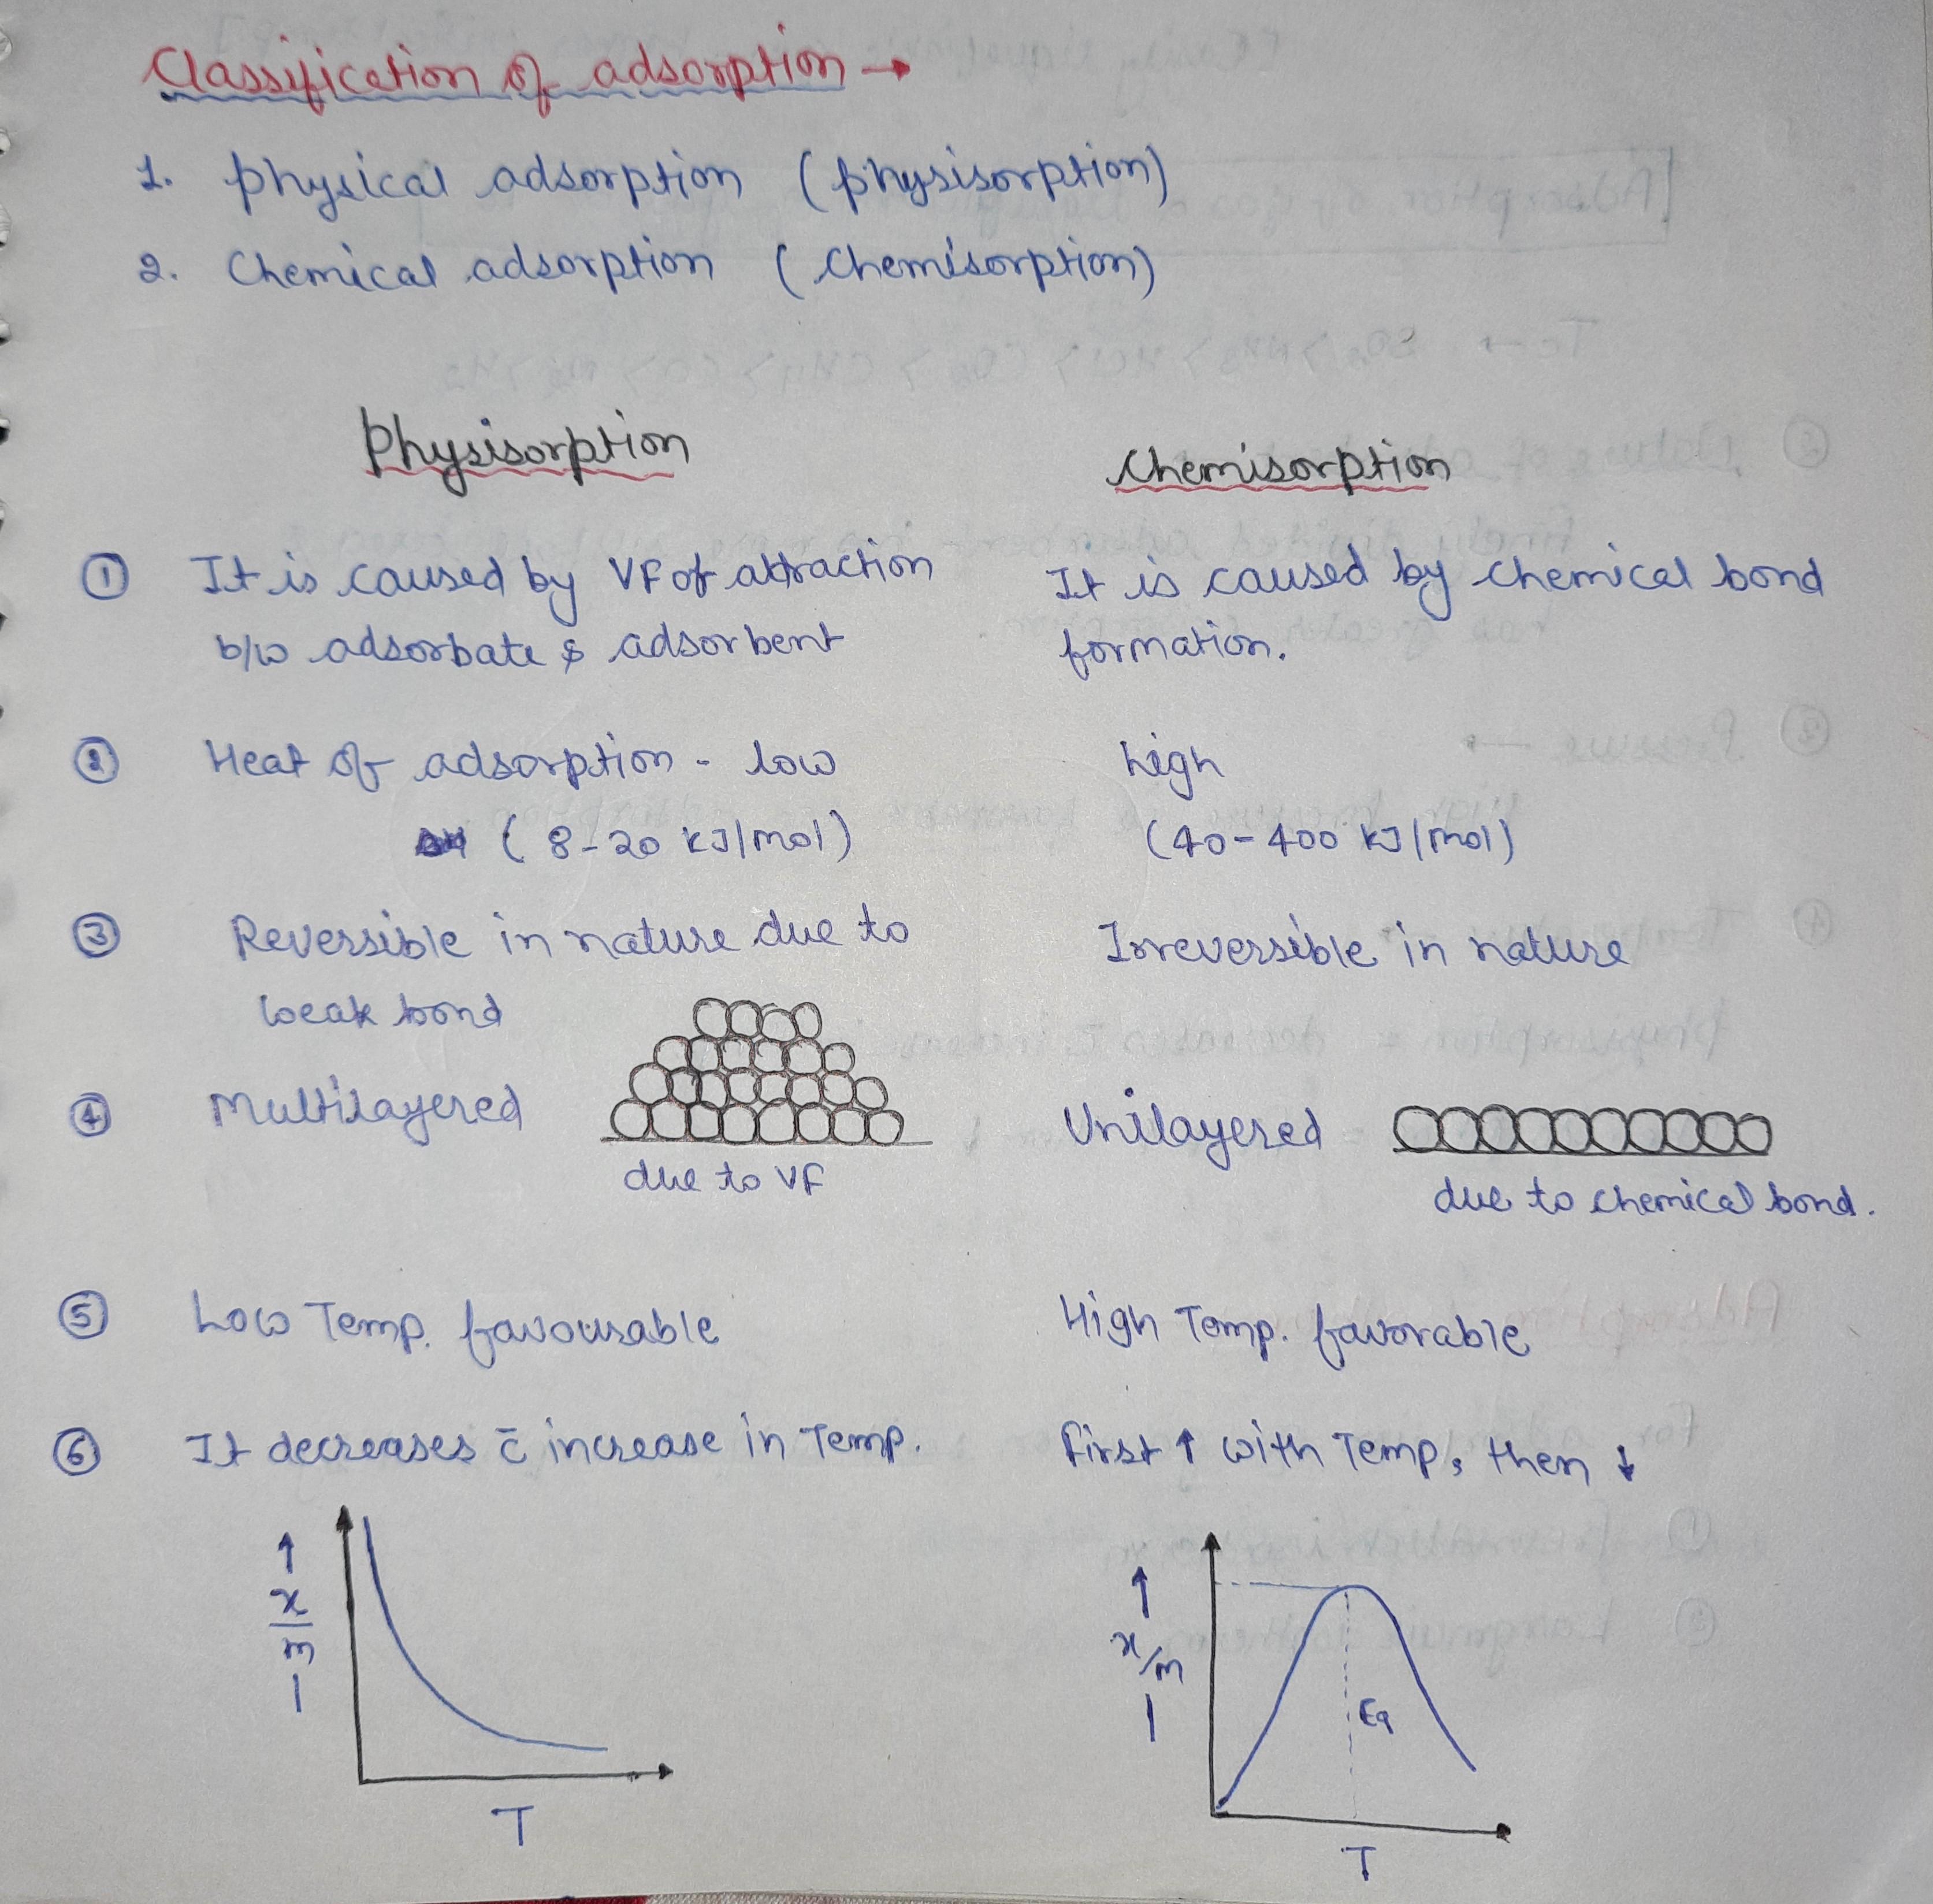 Classification of adsorption →
1. Physical adsorption (Physisorption)
2. Chemical adsorption (Chemisorption)
Physisorption
Chemisorption
① It is caused by VF of attraction
b/w adsorbate & adsorbent
It is caused by chemical bond
formation.
② Heat of adsorption - low
(8-20 kJ/mol)
high
(40-400 kJ/mol)
③ Reversible in nature due to
weak bond
Irreversible in nature
④ Multilayered
due to VF
Unilayered
due to chemical bond.
⑤ Low Temp. favourable
High Temp. favorable
⑥ It decreases c̄ increase in Temp.
First ↑ with Temp, then ↓
↑
x
m
T
↑
x/m
T